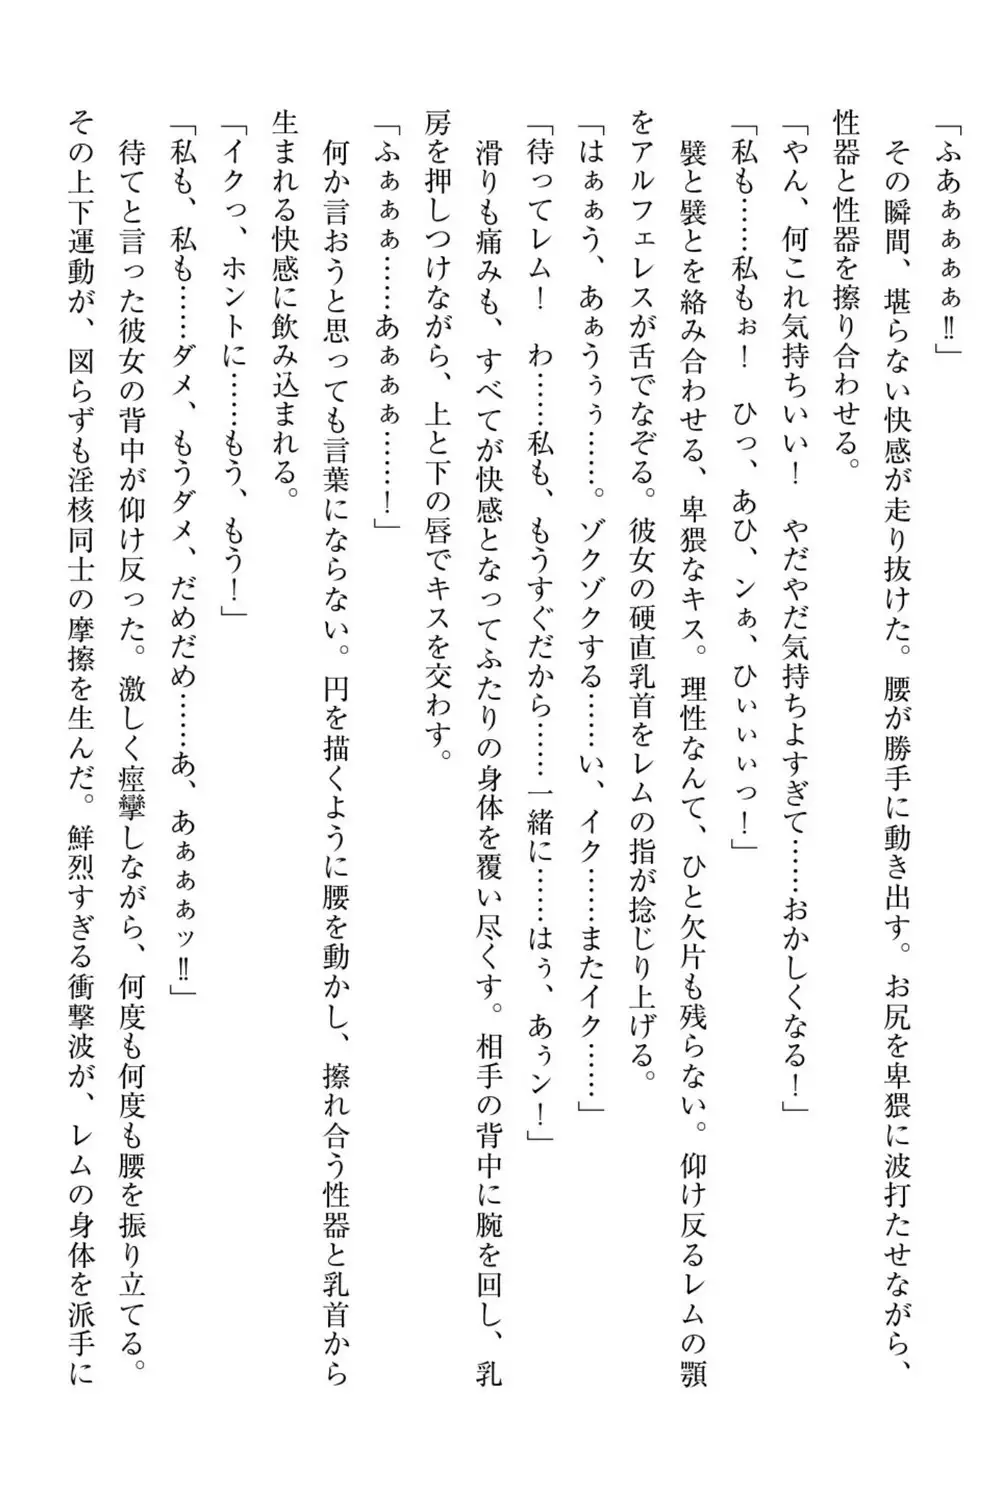 「ふあぁぁぁぁ‼」
　その瞬間、堪らない快感が走り抜けた。腰が勝手に動き出す。お尻を卑猥に波打たせながら、
性器と性器を擦り合わせる。
「やん、何これ気持ちいい！　やだやだ気持ちよすぎて……おかしくなる！」
「私も……私もぉ！　ひっ、あひ、ンぁ、ひぃぃぃっ！」
　襞と襞とを絡み合わせる、卑猥なキス。理性なんて、ひと欠片も残らない。仰け反るレムの顎
をアルフェレスが舌でなぞる。彼女の硬直乳首をレムの指が捻じり上げる。
「はぁぁう、あぁうぅぅ……。ゾクゾクする……い、イク……またイク……」
「待ってレム！　わ……私も、もうすぐだから……一緒に……はぅ、あぅン！」
　滑りも痛みも、すべてが快感となってふたりの身体を覆い尽くす。相手の背中に腕を回し、乳
房を押しつけながら、上と下の唇でキスを交わす。
「ふぁぁぁ……あぁぁぁ……！」
　何か言おうと思っても言葉にならない。円を描くように腰を動かし、擦れ合う性器と乳首から
生まれる快感に飲み込まれる。
「イクっ、ホントに……もう、もう！」
「私も、私も……ダメ、もうダメ、だめだめ……あ、あぁぁぁッ‼」
　待てと言った彼女の背中が仰け反った。激しく痙攣しながら、何度も何度も腰を振り立てる。
その上下運動が、図らずも淫核同士の摩擦を生んだ。鮮烈すぎる衝撃波が、レムの身体を派手に